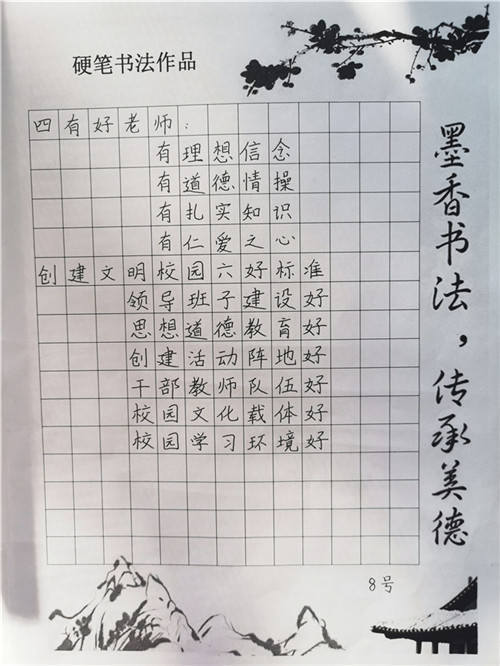 硬笔书法作品
四有好老师：
有理想信念
有道德情操
有扎实知识
有仁爱之心
创建文明校园六好标准
领导班子建设好
思想道德教育好
创建活动阵地好
干部教师队伍好
校园文化载体好
校园学习环境好
墨香书法，传承美德
8号